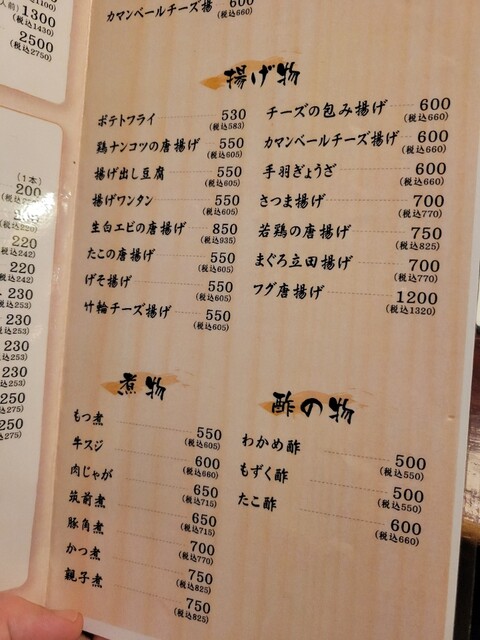 人前)
1300
(税込1430)
2500
(税込2750)
(1本)
200
220
(税込242)
220
(税込242)
230
(税込253)
230
(税込253)
230
(税込253)
230
(税込253)
250
(税込275)
250
(税込275)
カマンベールチーズ揚 600
(税込660)
揚げ物
ポテトフライ 530
(税込583)
鶏ナンコツの唐揚げ 550
(税込605)
揚げ出し豆腐 550
(税込605)
揚げワンタン 550
(税込605)
生白エビの唐揚げ 850
(税込935)
たこの唐揚げ 550
(税込605)
げそ揚げ 550
(税込605)
竹輪チーズ揚げ 550
(税込605)
チーズの包み揚げ 600
(税込660)
カマンベールチーズ揚げ 600
(税込660)
手羽ぎょうざ 600
(税込660)
さつま揚げ 700
(税込770)
若鶏の唐揚げ 750
(税込825)
まぐろ立田揚げ 700
(税込770)
フグ唐揚げ 1200
(税込1320)
煮物
もつ煮 550
(税込605)
牛スジ 600
(税込660)
肉じゃが 650
(税込715)
筑前煮 650
(税込715)
豚角煮 700
(税込770)
かつ煮 750
(税込825)
親子煮 750
(税込825)
酢の物
わかめ酢 500
(税込550)
もずく酢 500
(税込550)
たこ酢 600
(税込660)